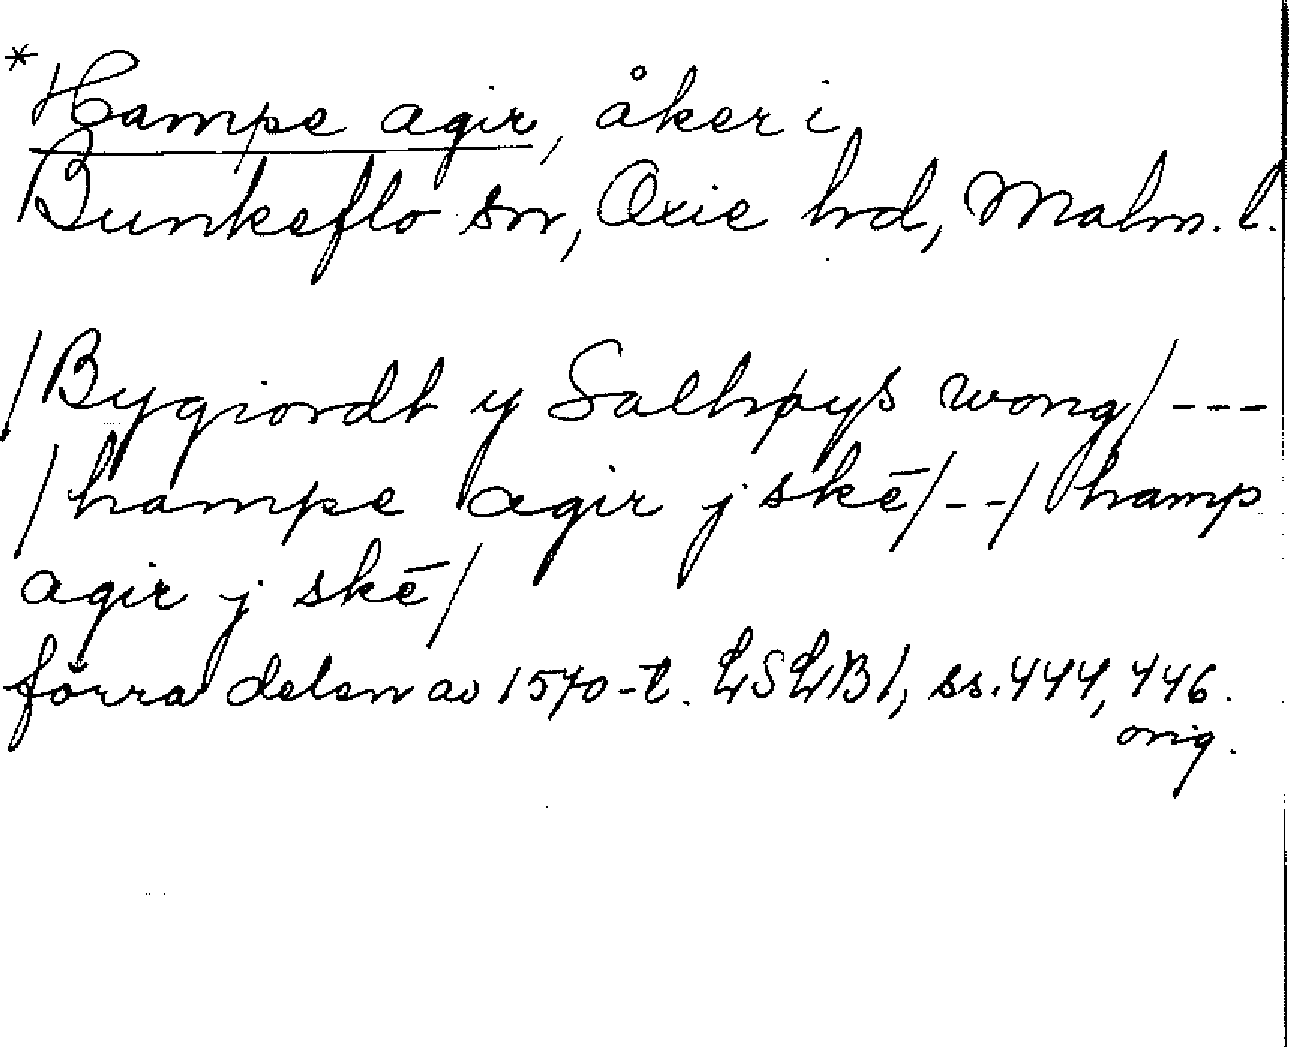 *Hampe agir, åker i
Bunkeflo sn, Oxie hd, Malm. l.
/Bygiordt y Salhøys wong/ ---
/hampe agir j skē/--/ hamp
agir j skē/
förra delen av 1570-t. LSLB1, ss. 444, 446.
orig.